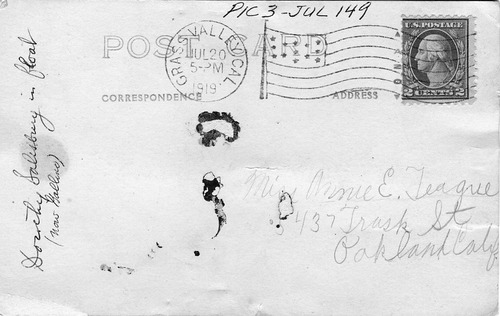 PIC 3 - JUL 149
POST CARD
GRASS VALLEY, CAL.
JUL 20
5-PM
1919
U.S. POSTAGE
2 CENTS 2
CORRESPONDENCE
ADDRESS
Dorothy Salisbury in float
(now
Miss Annie E. Teague
5437 Trask St
Oakland Calif